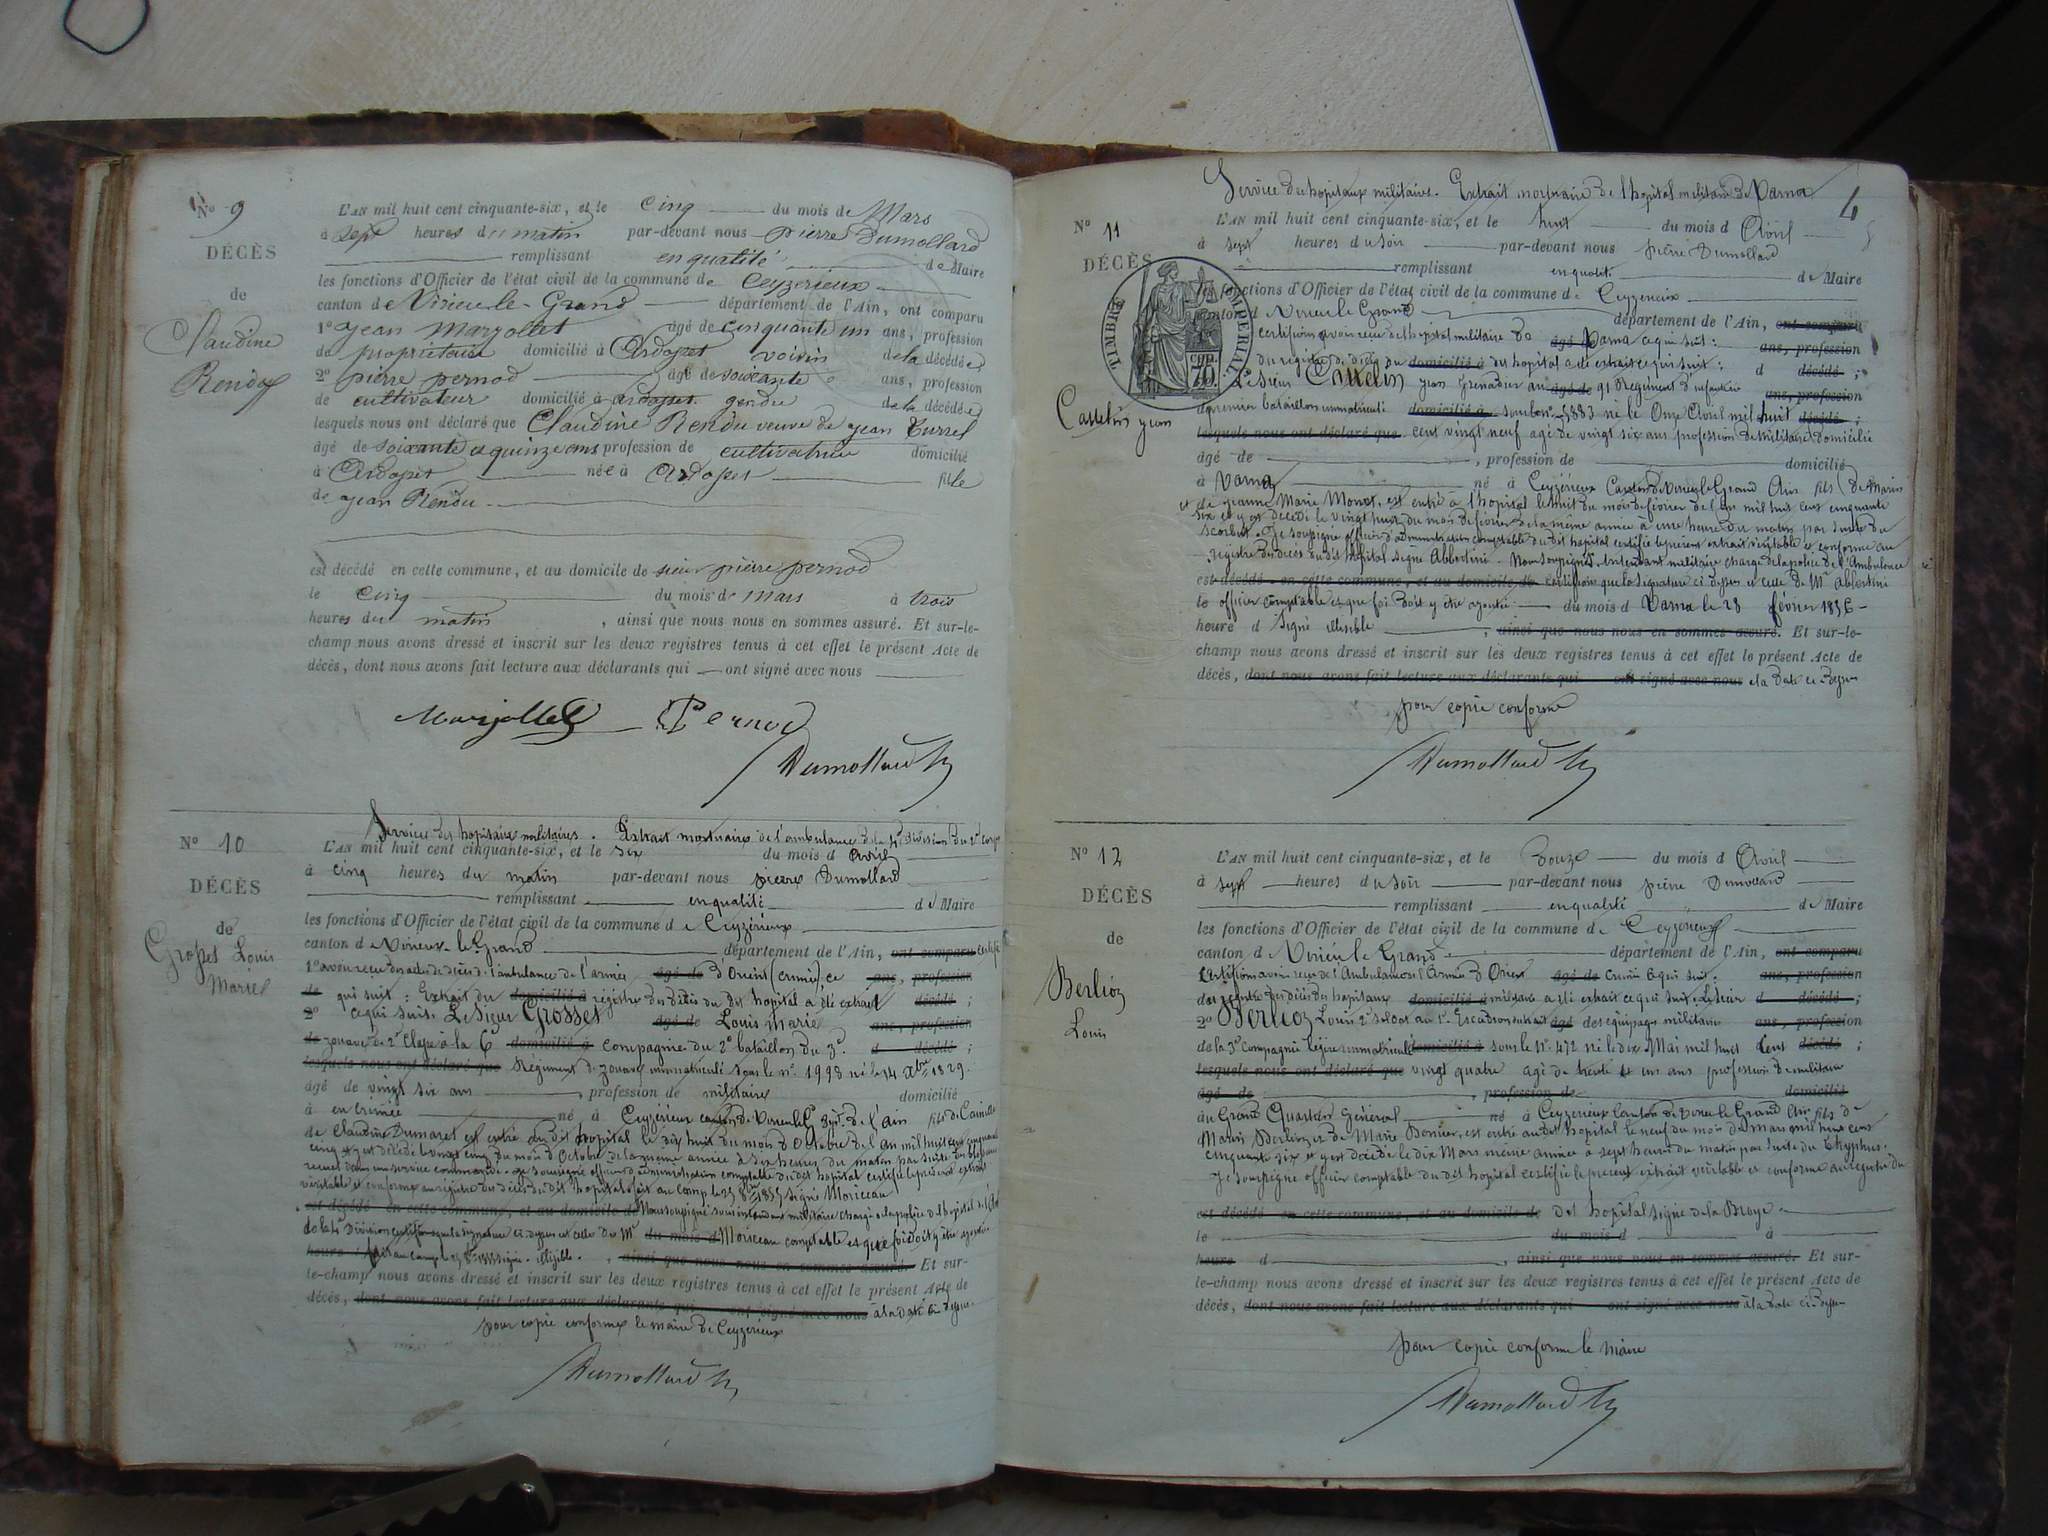 N° 9
DÉCÈS
de
Claudine
Rendu
L'AN mil huit cent cinquante-six, et le cinq du mois de Mars
à sept heures du matin par-devant nous pierre Dumollard
remplissant en qualité de Maire
les fonctions d'Officier de l'état civil de la commune de Ceyzerieux
canton de Virieu-le-Grand département de l'Ain, ont comparu
1° jean Marjollet âgé de cinquante un ans, profession
de propriétaire domicilié à Ardosset voisin de la décédée
2° pierre pernod âgé de soixante ans, profession
de cultivateur domicilié à ardosset gendre de la décédée
lesquels nous ont déclaré que Claudine Rendu veuve de jean Turrel
âgé de soixante et quinze ans profession de cultivatrice domicilié
à Ardosset née à Ardosset fille
de jean Rendu
est décédé en cette commune, et au domicile de sieur pierre pernod
le cinq du mois de mars à trois
heures du matin, ainsi que nous nous en sommes assuré. Et sur-le-
champ nous avons dressé et inscrit sur les deux registres tenus à cet effet le présent Acte de
décès, dont nous avons fait lecture aux déclarants qui ont signé avec nous
Marjollet Pernod
Dumollard
N° 10
DÉCÈS
de
Grosset Louis
Marie
Service des hopitaux militaires. Extrait mortuaire de l'ambulance de la 4e division du 2e corps
L'AN mil huit cent cinquante-six, et le six du mois d'Avril
à cinq heures du matin par-devant nous pierre Dumollard
remplissant en qualité de Maire
les fonctions d'Officier de l'état civil de la commune de Ceyzérieux
canton de Virieux-le-Grand département de l'Ain, ont comparu certifie
1° avoir reçu des actes de décès de l'ambulance de l'armée âgé de d'Orient (crimée), ce ans, profession
de qui suit : Extrait du domicilié à régistre des décès du dit hopital a été extrait décédé ;
2° ce qui suit. Le Sieur Grosset âgé de Louis Marie ans, profession
de zouave de 2e Classe à la 6e domicilié à compagnie du 2e bataillon du 3e d décédé ;
lesquels nous ont déclaré que Régiment de zouave immatriculé sous le n° 1998 né le 14 Xbre 1829.
âgé de vingt six ans, profession de militaire domicilié
à en Crimée né à Ceyzérieux canton de Virieu le G. dpt. de l'ain fils de Camille
de Claudine Dumaret est entré au dit hopital le dix huit du mois d'Octobre de l'an mil huit cent cinquante
cinq et y est décédé le vingt cinq du mois d'Octobre de la même année à six heures du matin par suite de blessures
reçues dans un service commandé. Je soussigné officier d'administration comptable du dit hopital certifie le présent extrait
véritable et conforme au régistre du décès du dit hopital fait au camp le 25 8bre 1855 signé Moriceau
est décédé en cette commune, et au domicile de Nous soussigné sous intendant militaire chargé de la police de l'hopital
de la 4e Division certifions que la signature ci dessus est celle de Mr du mois d Moriceau comptable et que foi doit y être ajoutée
heure fait au camp signé illisible. , ainsi que nous nous en sommes assuré. Et sur-
le-champ nous avons dressé et inscrit sur les deux registres tenus à cet effet le présent Acte de
décès, dont nous avons fait lecture aux déclarants qui ont signé avec nous à la date ci dessus.
pour copie conforme le maire de Ceyzerieux
Dumollard
4
N° 11
DÉCÈS
TIMBRE IMPERIAL
Castelin jean
Service des hopitaux militaire. Extrait mortuaire de l'hopital militaire de Varna
L'AN mil huit cent cinquante-six, et le huit du mois d'Avril
à sept heures du soir par-devant nous pierre Dumollard
remplissant en qualité de Maire
les fonctions d'Officier de l'état civil de la commune de Ceyzerieux
canton de Virieu le Grand département de l'Ain, ont comparu
certifions avoir reçu de l'hopital militaire de âgé Varna ce qui suit : ans, profession
du régistre de décès du domicilié à dit hopital a été extrait ce qui suit : d décédé ;
Le Sieur Castelin jean Grenadier au âgé de 91 Régiment d'infanterie ans, profession
du premier bataillon immatriculé domicilié à sous le n° 5883 né le Onze Avril mil huit décédé ;
lesquels nous ont déclaré que cent vingt neuf agé de vingt six ans profession de Militaire domicilié
âgé de , profession de domicilié
à Varna né à Ceyzérieux Canton de Virieu le Grand Ain fils de Marin
et de jeanne Marie Monet, est entré à l'hopital le huit du mois de février de l'an mil huit cent cinquante
six et y est décédé le vingt huit du mois de février de la même année à une heure du matin par suite du
scorbut. Je soussigné officier d'administration comptable du dit hopital certifie le présent extrait véritable et conforme au
régistre du décès du dit hopital signé Abbertini. Nous soussigné S. Intendant militaire chargé de la police de l'Ambulance
est décédé en cette commune, et au domicile de certifions que la signature ci dessus est celle de Mr Abbertini
le officier comptable et que foi doit y être ajoutée. du mois d Varna le 28 février 1856
heure d Signé illisible , ainsi que nous nous en sommes assuré. Et sur-le-
champ nous avons dressé et inscrit sur les deux registres tenus à cet effet le présent Acte de
décès, dont nous avons fait lecture aux déclarants qui ont signé avec nous et la date ci dessus
pour copie conforme
Dumollard
N° 12
DÉCÈS
de
Berlioz
Louis
L'AN mil huit cent cinquante-six, et le douze du mois d'Avril
à sept heures du soir par-devant nous pierre Dumollard
remplissant en qualité de Maire
les fonctions d'Officier de l'état civil de la commune de Ceyzérieux
canton de Virieu le Grand département de l'Ain, ont comparu
Certifions avoir reçu de l'Ambulance de l'Armée d'Orient âgé de Crimée ce qui suit : ans, profession
du registre des décès des hopitaux domicilié à militaire a été extrait ce qui suit. Le Sieur d décédé ;
2° Berlioz Louis 2e soldat au 1er Escadron du train âgé des équipages militaire ans, profession
de la 3e Compagnie légère immatriculé domicilié à sous le N° 472 né le dix Mai mil huit Cent décédé ;
lesquels nous ont déclaré que vingt quatre agé de trente et un ans profession de militaire
âgé de , profession de domicilié
à au Grand Quartier Général né à Ceyzerieux Canton de Virieu le Grand Ain fils de
Marin Berlioz et de Marie Bonier, est entré au dit hopital le neuf du mois de Mars mil huit cent
cinquante six et y est décédé le dix Mars même année à sept heures du matin par suite du thyphus.
Je soussigné officier comptable du dit hopital certifie le présent extrait véritable et conforme au registre du
est décédé en cette commune, et au domicile de dit hopital signé de la Broye.
le du mois d à
heure d , ainsi que nous nous en sommes assuré. Et sur-
le-champ nous avons dressé et inscrit sur les deux registres tenus à cet effet le présent Acte de
décès, dont nous avons fait lecture aux déclarants qui ont signé avec nous à la date ci dessus
pour copie conforme le Maire
Dumollard